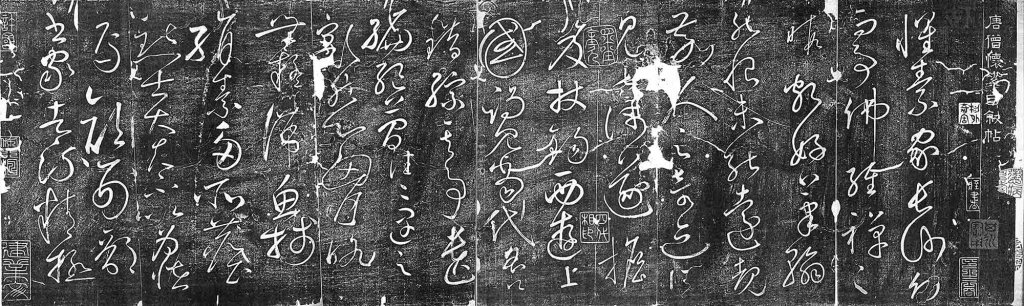 唐僧懷素自叙帖
懷素家長沙幼而
事佛經禪之
暇頗好筆翰
然恨未能遠覩
前人之奇迹所
見甚淺遂擔
笈杖錫西遊上
國謁見當代名公
錯綜其事遺
編絕簡往往遇之
豁然心胸略
無疑滯魚牋
絹素多所塵
點士大夫不以為怪
焉顏刑部
書家者流精極